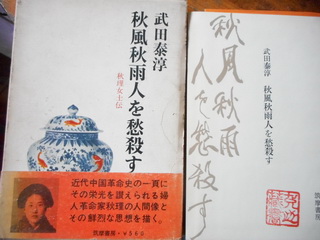 武田泰淳
秋風秋雨人を愁殺す
秋瑾女士伝
近代中国革命史の一頁に
その栄光を讃えられる婦
人革命家秋瑾の人間像と
その鮮烈な思想を描く。
筑摩書房・￥560
秋風秋雨
人を愁殺す
武田泰淳
秋風秋雨人を愁殺す
筑摩書房